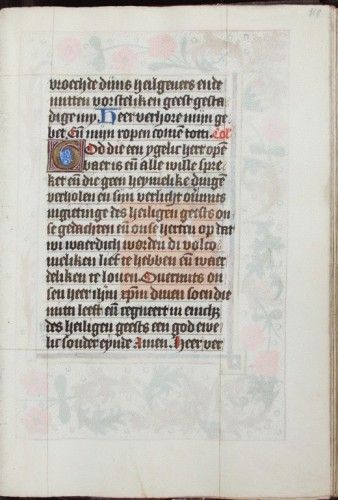 vroechde dijns heilgevers ende
mitten vorsteliken geest gesta
dige my. Heer verhore mijn ge
bet Eñ mijn ropen come totti. Coll
God die een ygelic hert opē
baer is eñ alle wille spre
ket eñ die geen heymelike dingē
verholen en sijn verlicht ouermits
ingietinge des heiligen geests on
se gedachten eñ onse herten op dat
wi waerdich worden di volco
meliken lief te hebben eñ waer
deliken te louen. Ouermits on
sen heer ihm xpm dinen soen die
mit leeft eñ regneert in enich
des heiligen geests een god ewe
lic sonder eynde Amen. Heer ver